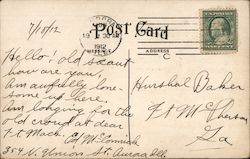 7/18/12
Post Card
1912
ADDRESS
Hello! old scout
how are you?
Am awfully lone-
some up here.
Am longing for the
old crowd at dear
Ft Mack.
Ed McCormick
354 N. Union St. Aurora Ill.
Hurshal Baker
Ft McPherson
Ga